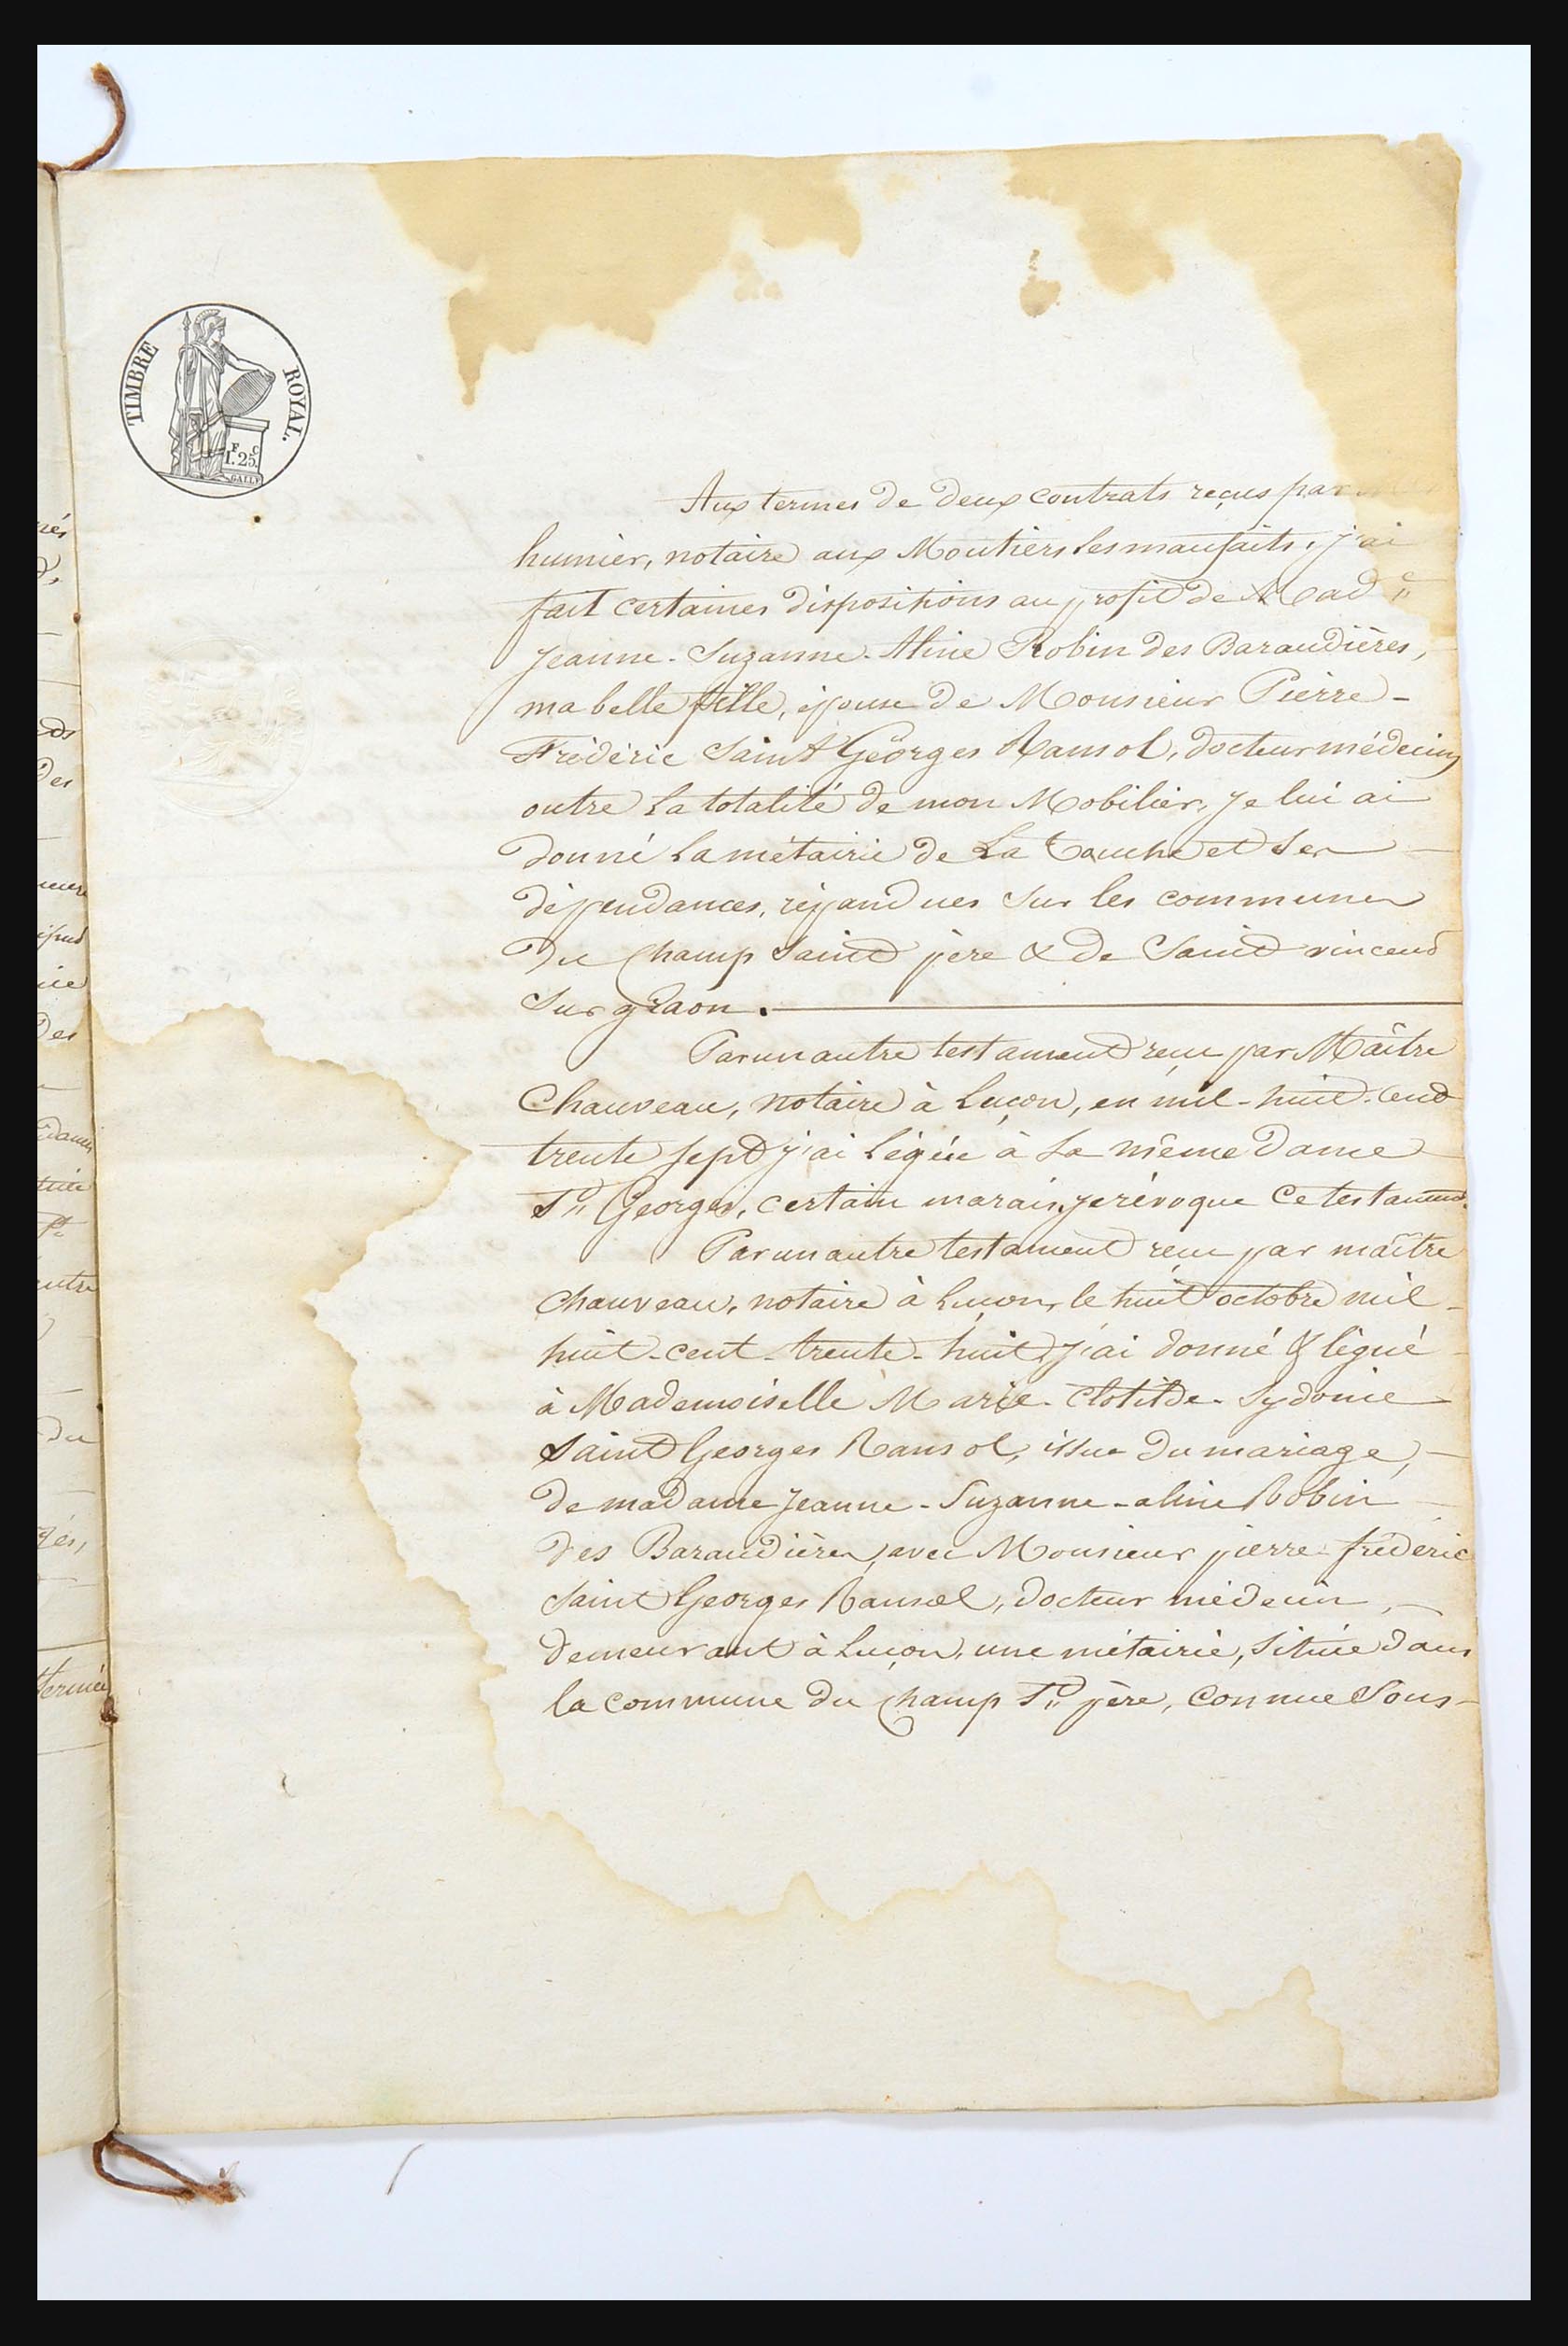 TIMBRE ROYAL.
F C
1.25
GALLE
Aux termes de deux contrats reçus par
humier, notaire aux Moutiers les maufaits, j'ai
fait certaines dispositions au profit de Mad.e
Jeanne-Suzanne-Aline Robin des Baraudières,
ma belle fille, épouse de Monsieur Pierre-
Frédéric Saint Georges Ransol, docteur médecin,
outre la totalité de mon Mobilier, je lui ai
donné la métairie de La Touche et ses
dépendances, répandues sur les communes
du Champ Saint père & de Saint vincent
sur graon.
Par un autre testament reçu par Maître
Chauveau, notaire à Luçon, en mil-huit-cent
trente sept j'ai légué à la même Dame
St Georges, certain marais, je révoque ce testament.
Par un autre testament reçu par maître
Chauveau, notaire à Luçon, le huit octobre mil-
huit-cent-trente-huit, j'ai donné & légué
à Mademoiselle Marie-Clotilde-Sydonie
Saint Georges Ransol, issue du mariage,
de madame Jeanne-Suzanne-aline Robin
des Baraudières, avec Monsieur pierre-frédéric
Saint Georges Ransol, docteur médecin,
demeurant à Luçon, une métairie, située dans
la commune du Champ St père, connue sous-